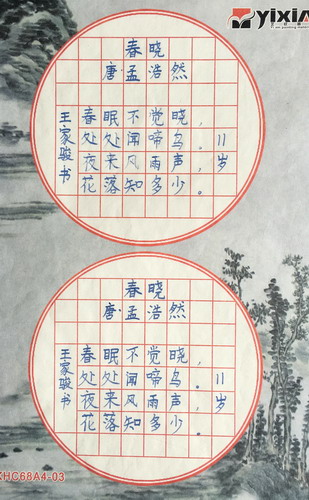 yixia
春晓
唐·孟浩然
春眠不觉晓，
处处闻啼鸟。
夜来风雨声，
花落知多少。
王家骏书
11岁
春晓
唐·孟浩然
春眠不觉晓，
处处闻啼鸟。
夜来风雨声，
花落知多少。
王家骏书
11岁
XHC68A4-03